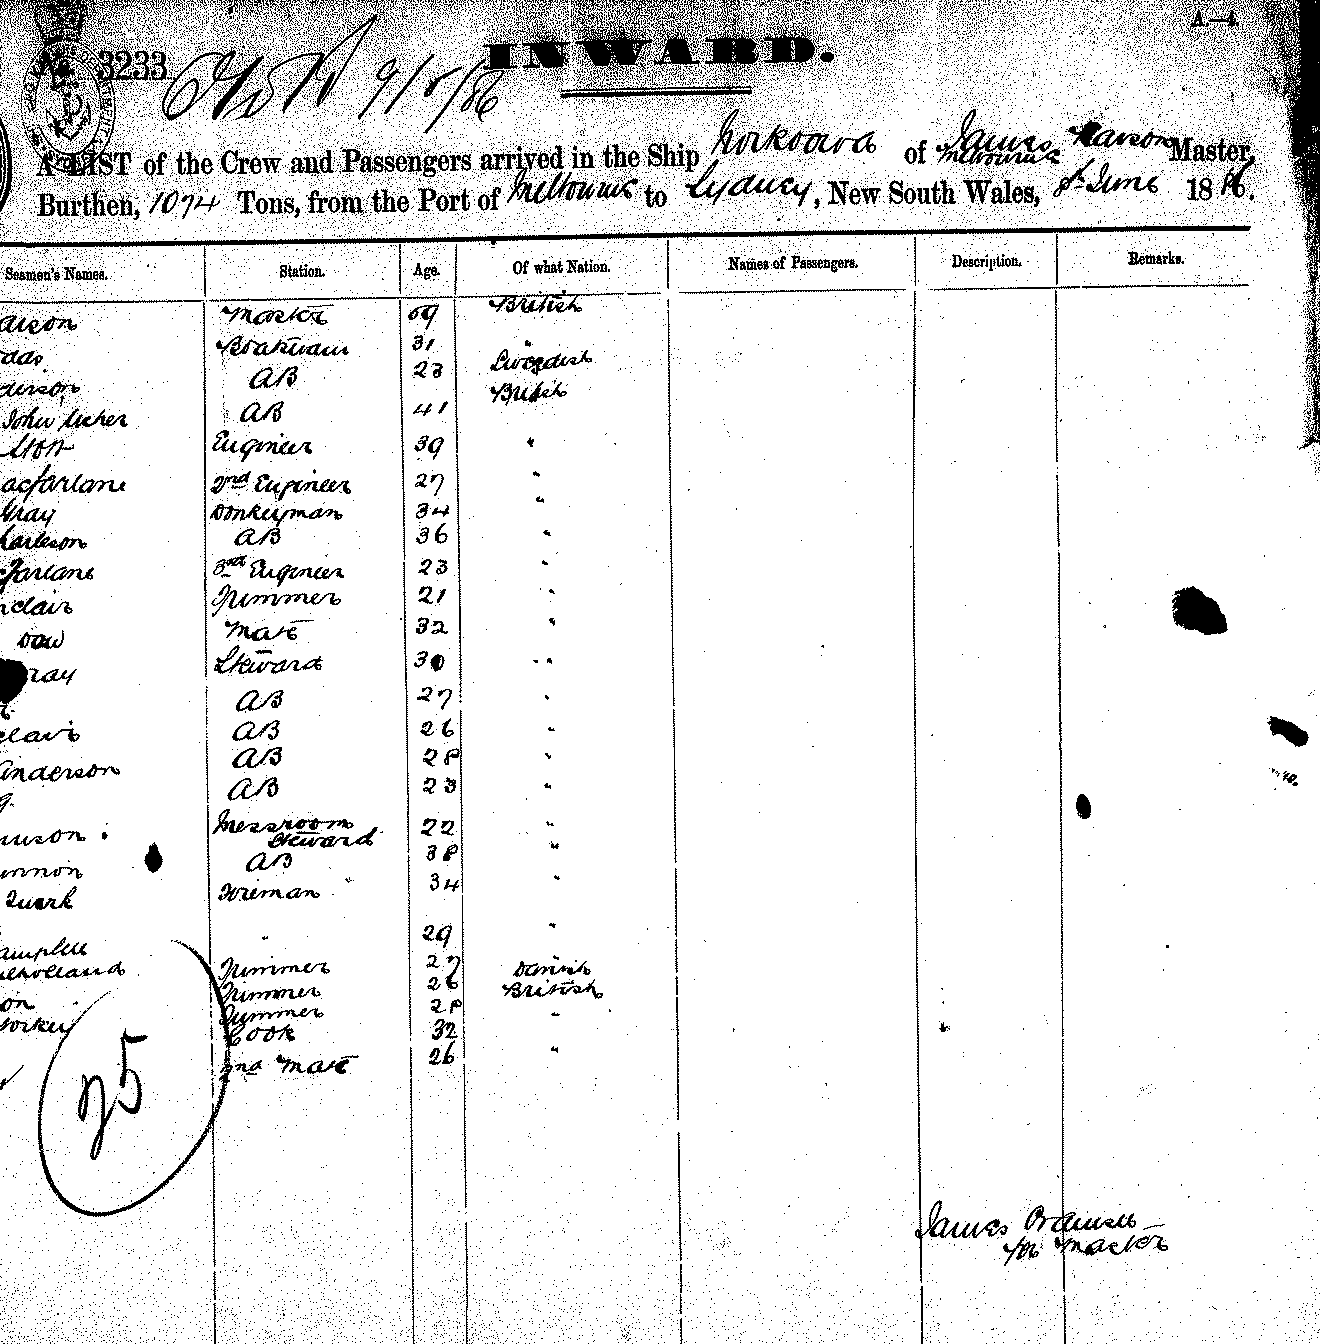 A—4
3233 9/6/86 INWARD.
A LIST of the Crew and Passengers arrived in the Ship of James Master,
Melbourne
Burthen, 1074 Tons, from the Port of Melbourne to Sydney, New South Wales, 8th June 1886.
Seamen's Names. Station. Age. Of what Nation. Names of Passengers. Description. Remarks.
arson Master 59 British
odds Boatswain 31 "
derson AB 23 Swedish
John Usher AB 41 British
Engineer 39 "
acfarlane 2nd Engineer 27 "
Gray Donkeyman 34 "
harlson AB 36 "
cfarlane 3rd Engineer 23 "
nclair Trimmer 21 "
Daw Mate 32 "
ray Steward 30 "
AB 27 "
clair AB 26 "
Anderson AB 28 "
g AB 23 "
nuson Messroom Steward 22 "
annon AB 38 "
Quark Foreman 34 "
" 29 "
ampbell
ulholland Trimmer 27 Danish
on Trimmer 26 British
Yorkey Trimmer 28 "
Cook 32
2nd Mate 26 "
25
James
for Master